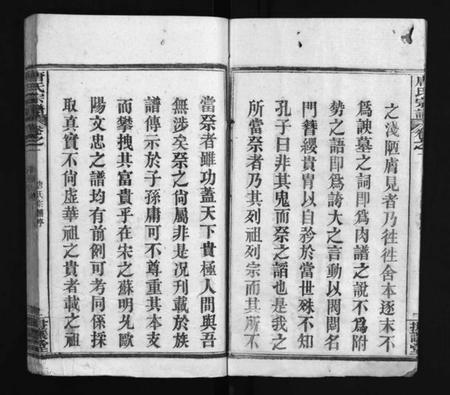 之淺陋膚見者乃徃徃舍本逐末不
為諛墓之詞即為肉譜之說不為附
勢之語即為誇大之言動以閥閱名
門簪纓貴胄以自矜於當世殊不知
孔子曰非其鬼而祭之諂也是我之
所當祭者乃其列祖列宗而其所不
當祭者雖功蓋天下貴極人間與吾
無涉矣祭之尚屬非是况刊載於族
譜傳示於子孫庸可不尊重其本支
而攀拽其富貴乎在宋之蘇明允歐
陽文忠之譜均有前例可考同係採
取真實不尚虛華祖之貴者載之祖
唐氏宗譜
卷之一